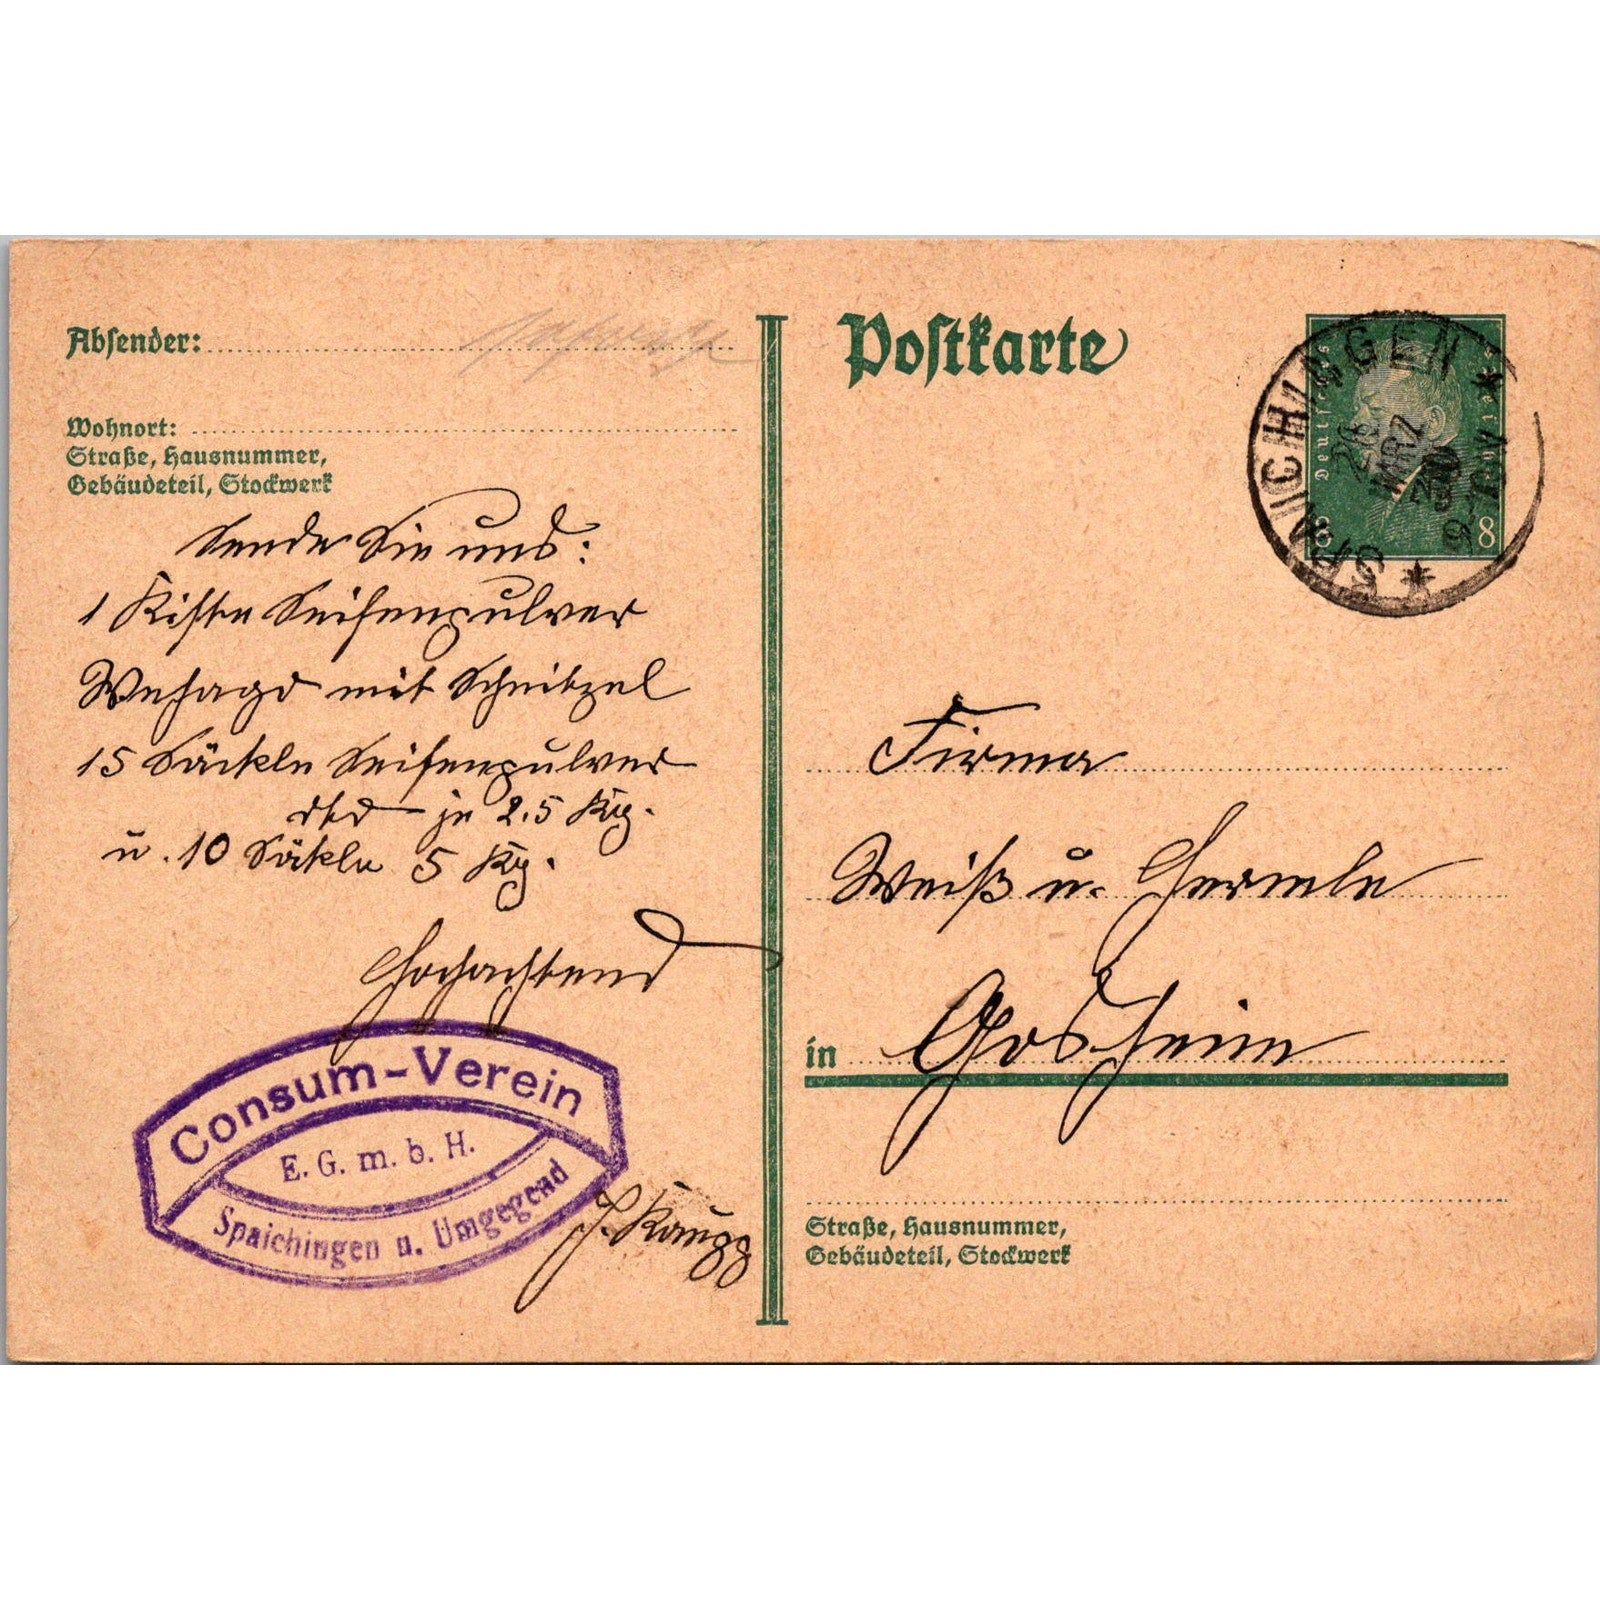 Absender:
Wohnort:
Straße, Hausnummer,
Gebäudeteil, Stockwerk
Sende Sie uns:
1 Kiste Seifenpulver
mit Schnitzel
15 Säckeln Seifenpulver
je 2.5 Kg.
u. 10 Säkeln 5 Kg.
Hochachtend
Consum-Verein
E. G. m. b. H.
Spaichingen u. Umgegend
Postkarte
Deutsches Reich
8 8
SPAICHINGEN
26 MRZ 30
Firma
Weiß u. Hermle
in Gosheim
Straße, Hausnummer,
Gebäudeteil, Stockwerk